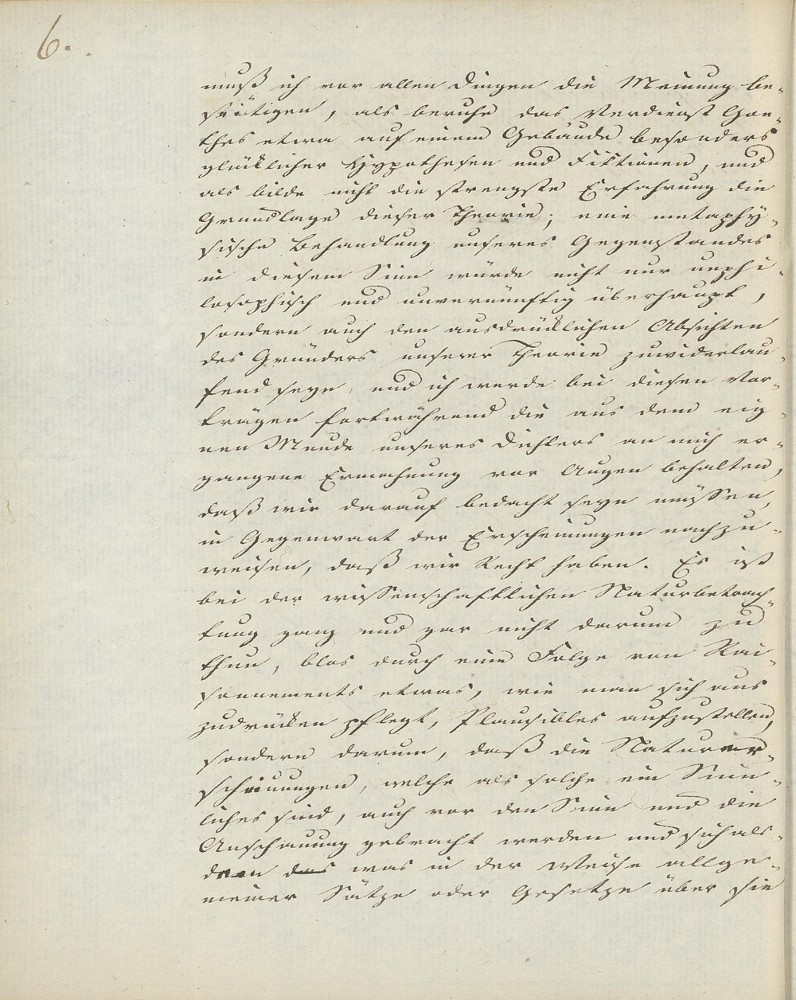 6.
muß ich vor allen Dingen die Meinung be-
seitigen, als beruhe das Verdienst Goe-
thes etwa auf einem Gebäude besonders
glüklicher Hypothesen und Fiktionen, und
als bilde nicht die strengste Erfahrung die
Grundlage dieser Theorie; eine metaphy-
sische Behandlung unseres Gegenstandes
in diesem Sinn würde nicht nur unphi-
losophisch und unvernünftig überhaupt,
sondern auch den ausdrüklichen Absichten
des Gründers unserer Theorie zuwiderlau-
fend seyn, und ich werde bei diesen Vor-
trägen fortwährend die aus dem eig-
nen Munde unseres Dichters an mich er-
gangene Ermahnung vor Augen behalten,
daß wir darauf bedacht seyn müssen,
in Gegenwart der Erscheinungen nachzu-
weisen, daß wir Recht haben. Es ist
bei der wissenschaftlichen Naturbetrach-
tung ganz und gar nicht darum zu
thun, blos durch eine Folge von Rai-
sonnements etwas, wie man sich aus
zudrüken pflegt, Plausibles aufzustellen,
sondern darum, daß die Naturer-
scheinungen, welche als solche ein Sinn-
liches sind, auch vor den Sinn und die
Anschauung gebracht werden und sich als-
dann das was in der Weise allge-
meiner Sätze oder Gesetze über sie